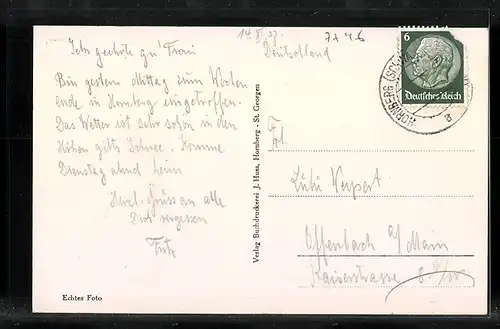 14. XI. 37.
7 x 4 6
Deutschland
6
Deutsches Reich
HORNBERG (SCHW
a
Sehr geehrte gn' Frau
Bin gestern Mittag zum Wochen
ende in Hornberg eingetroffen.
Das Wetter ist sehr schön in den
Höhen gibts Schnee. Komme
Dienstag abend heim
Herzl. Gruss an alle
vergessen
Fritz
Echtes Foto
Verlag Buchdruckerei J. Huss, Hornberg - St. Georgen
Frl.
Offenbach a/Main
Kaiserstrasse